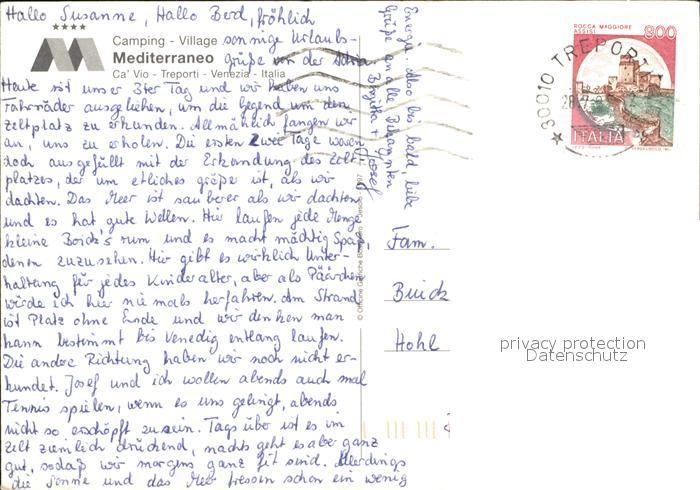 Hallo Susanne, Hallo Berd, fröhlich
★★★★
Camping - Village sonnige Urlaubs-
Mediterraneo Grüße von der Adria
Ca' Vio - Treporti - Venezia - Italia
Heute ist unser 3ter Tag und wir haben uns
Fahrräder ausgeliehen, um die Gegend um den
Zeltplatz zu erkunden. Allmählich fangen wir
an, uns zu erholen. Die ersten zwei Tage waren
doch ausgefüllt mit der Erkundung des Zelt-
platzes, der um etliches größe ist, als wir
dachten. Das Meer ist sauberer als wir dachten
und es hat gute Wellen. Hier laufen jede Menge
kleine Boick's rum und es macht mächtig Spaß,
denen zuzusehen. Hier gibt es wirklich Unter-
haltung für jedes Kinderalter, aber als Päärchen
würde ich hier niemals herfahren. Am Strand
ist Platz ohne Ende und wir denken man
kann bestimmt bis Venedig entlang laufen.
Die andre Richtung haben wir noch nicht er-
kundet. Josef und ich wollen abends auch mal
Tennis spielen, wenn es uns gelingt, abends
nicht so erschöpft zu sein. Tags über ist es im
Zelt ziemlich drückend, nachts geht es aber ganz
gut, sodaß wir morgens ganz fit sind. Allerdings
die Sonne und das Meer fressen schon ein wenig
Energie. Also bis bald, liebe
Grüße an alle Bekannten
Birgitta + Josef
© Officine Grafiche
ROCCA MAGGIORE
ASSISI
800
ITALIA
30010 TREPORTI
Fam.
Hohl
privacy protection
Datenschutz